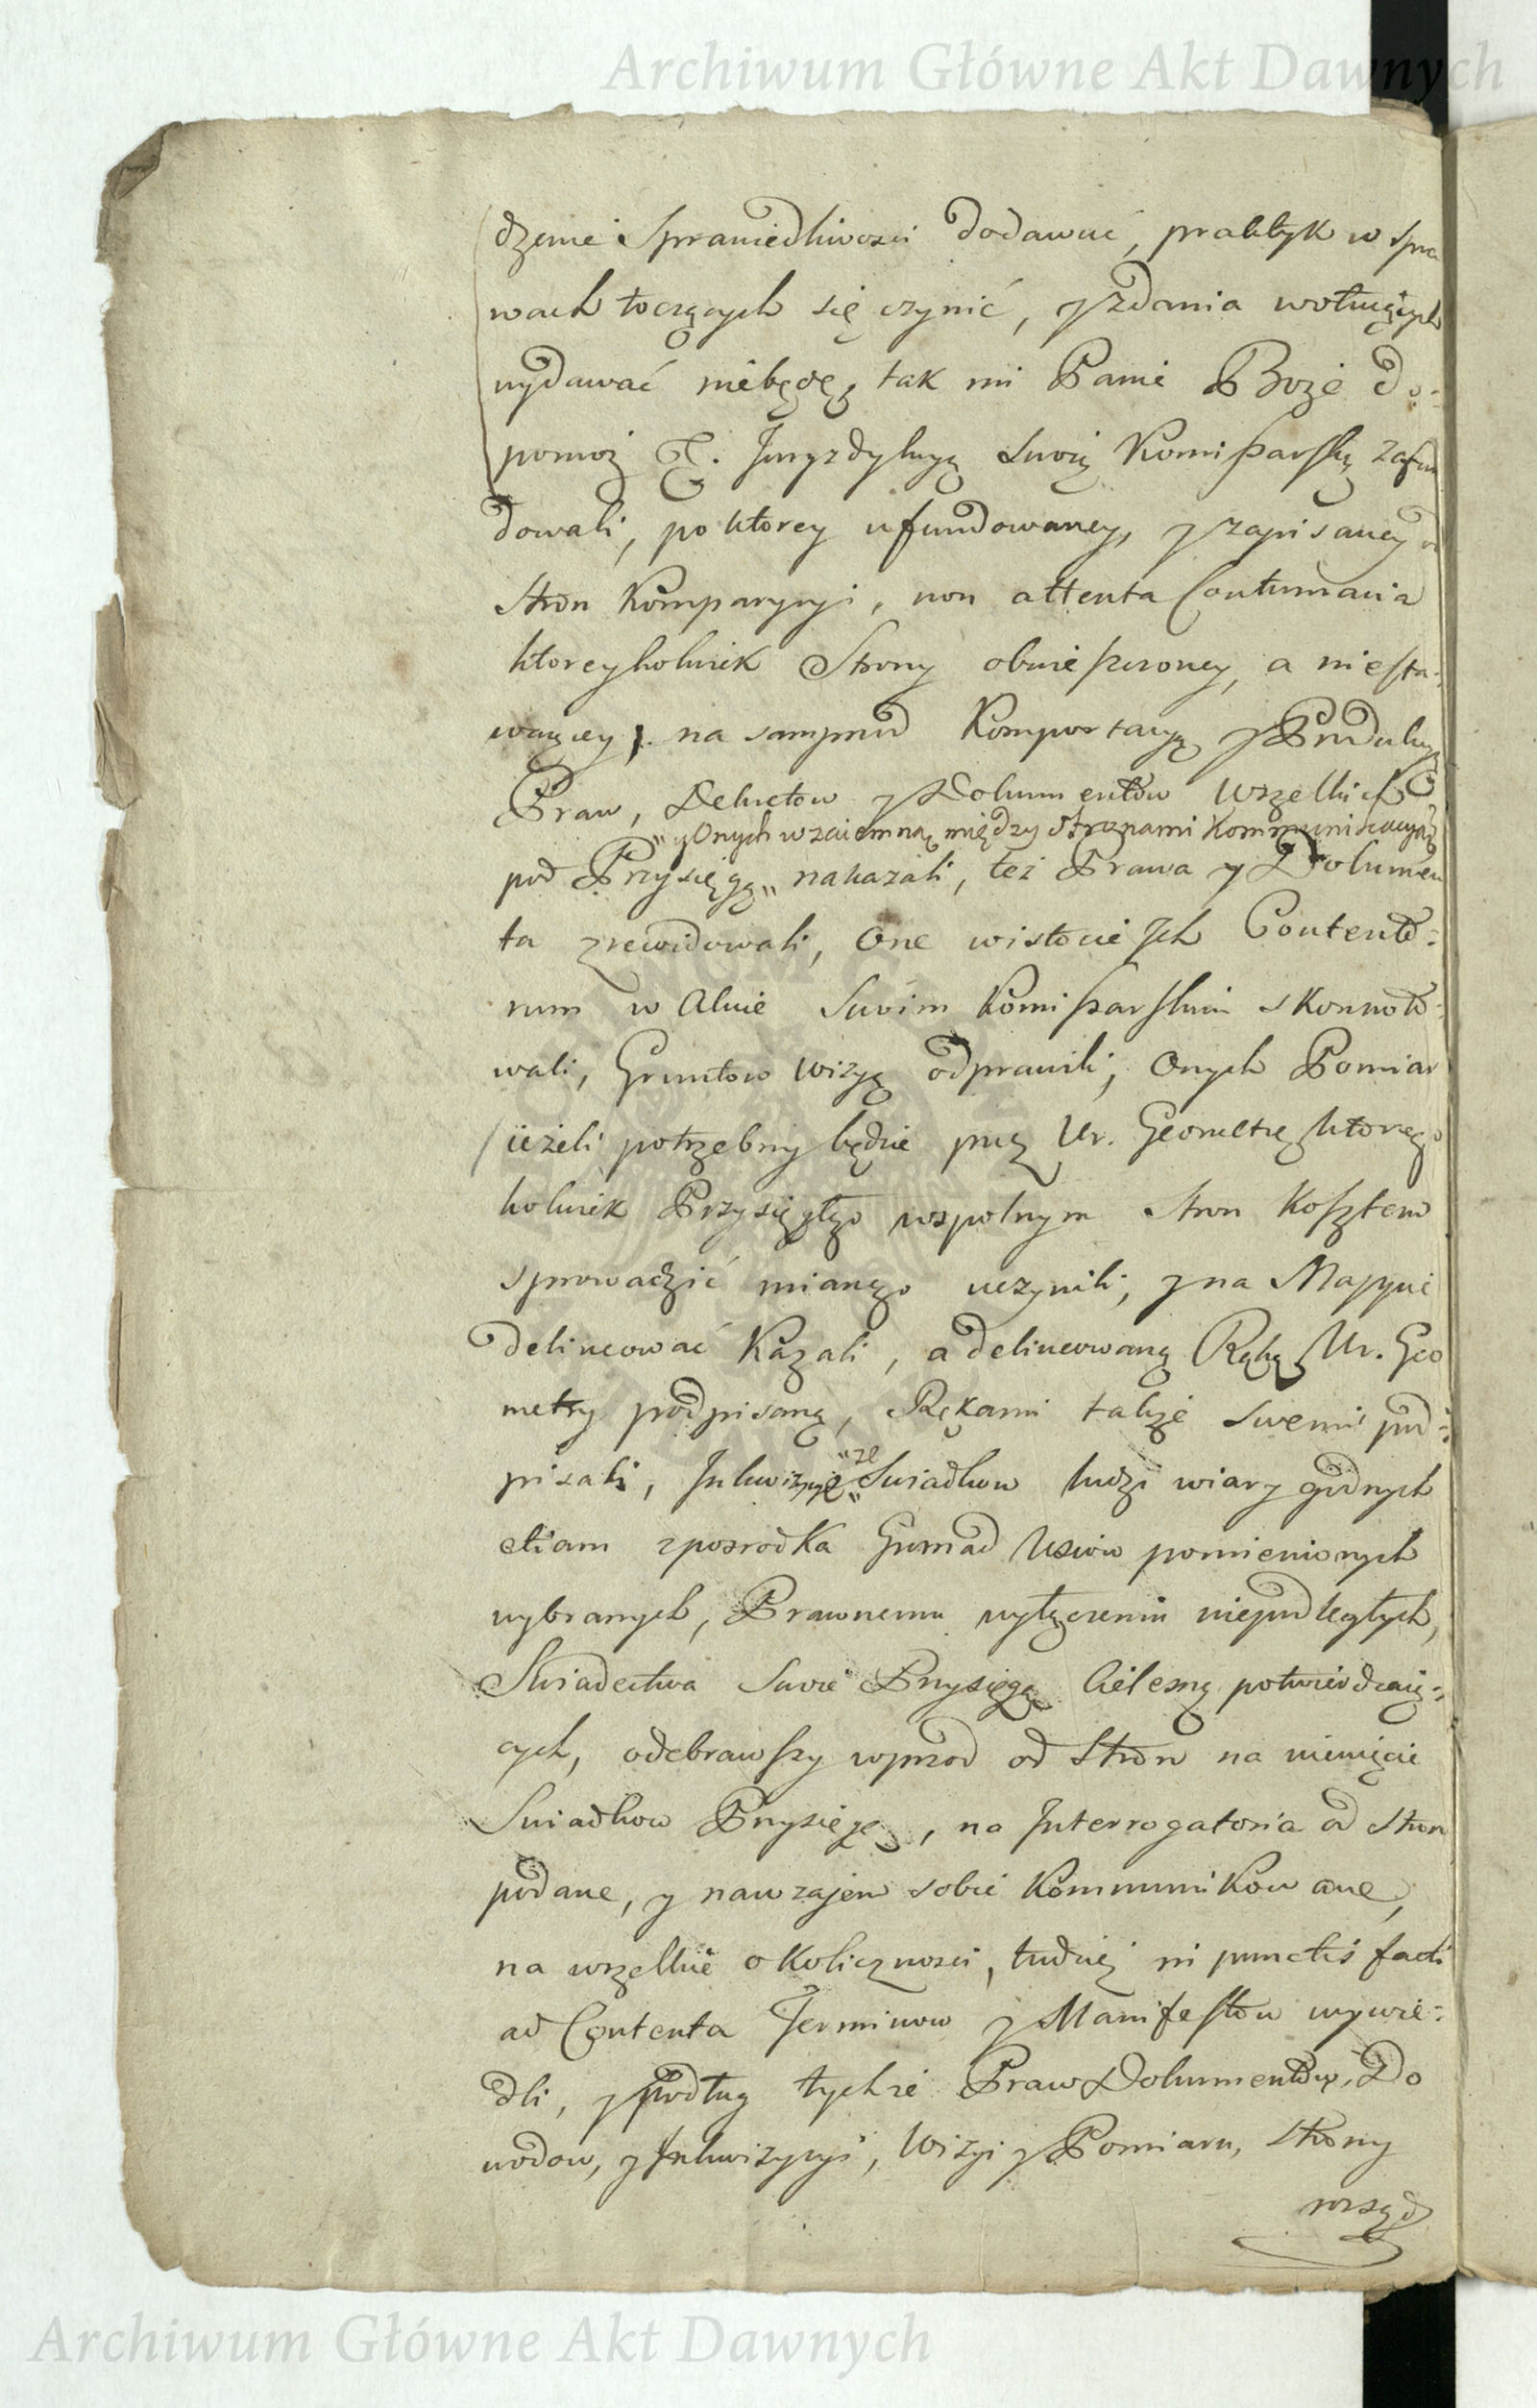 Archiwum Główne Akt Dawnych
dzenie Sprawiedliwosci dodawać, praktyk w spra
wach toczących się czynić, y zdania wotuiących
wydawać niebędę, tak mi Panie Boże do:
pomoż &. Juryzdykcyą Swoią Kommissarską zafun
dowali, po ktorey ufundowaney, y zapisaney od
Stron Komparycyi, non attenta Contumacia
ktoreykolwiek Strony obwieszczoney, a niesta:
waiącey, na samprzod Komportacyą y Produkcyą
Praw, Dekretow y Dokumentow wszelkich
"y Onych wzaiemną między Stronami Kommunikacyą"
pod Przysięgą" nakazali, też Prawa y Dokumen
ta zrewidowali, One wistocie Jch Contento:
rum w Akcie Swoim Komissarskim skonnoto:
wali, Gruntow wizyą odprawili, Onych Pomiar
ieżeli potrzebny będzie przez Ur. Geometrę ktorego
kolwiek Przysięgłego wspolnym Stron Kosztem
sprowadzić mianego uczynili, y na Mappie
delineować Kazali, a delineowaną Ręką Ur. Geo
metry podpisaną, Rękami także swemi pod:
pisali, Jnkwizycye "ze" Swiadkow ludzi wiary godnych
etiam zposrodka Gromad Wsiow pomienionych
wybranych, Prawnemu wyłączeniu niepodległych,
Swiadectwa Swoie Przysięgą Cielesną potwierdzaią:
cych, odebrawszy wprzod od Stron na niewzięcie
Swiadkow Przysięgę, na Interrogatoria od Stron
podane, y nawzajem sobie Kommunikowane,
na wszelkie okoliczności, tudzież in punctis facti
ad Contenta Terminow y Manifestow wywie:
dli, y podług tychże Praw Dokumentow, Do
wodow, y Jnkwizycyi, Wizyi y Pomiaru, Strony
rozsąd
Archiwum Główne Akt Dawnych